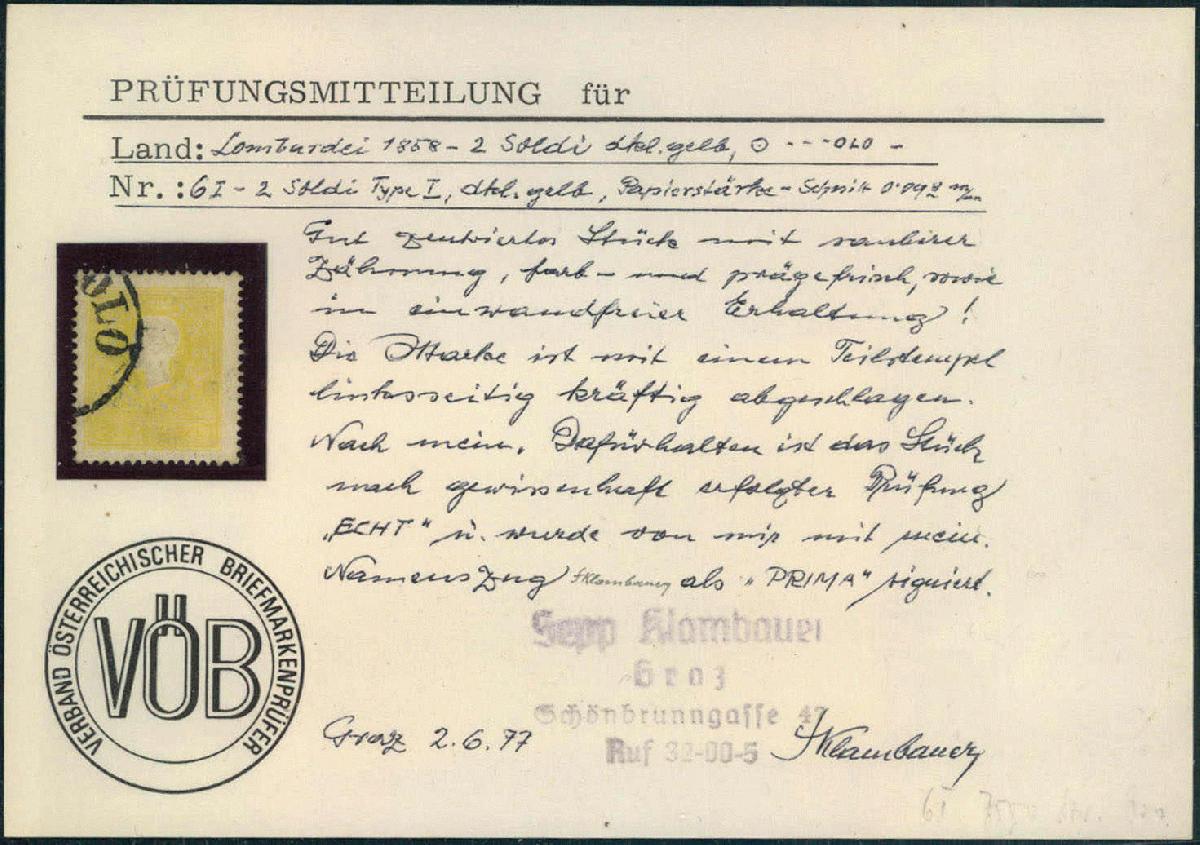 PRÜFUNGSMITTEILUNG für
Land: Lombardei 1858 - 2 Soldi dkl. gelb, O ---OLO -
Nr.: 6I - 2 Soldi Type I, dkl. gelb, Papierstärke - Schnitt 0.092 m/m
Gut zentriertes Stück mit sauberer
Zähnung, farb- und prägefrisch, sowie
in einwandfreier Erhaltung!
Die Marke ist mit einem Teilstempel
linksseitig kräftig abgeschlagen.
Nach mein. Dafürhalten ist das Stück
nach gewissenhaft erfolgter Prüfung
"ECHT" u. wurde von mir mit mein.
Namenszug SKlambauer als "PRIMA" signiert.
OLO
VERBAND ÖSTERREICHISCHER BRIEFMARKENPRÜFER
VÖB
Sepp Klambauer
Graz
Schönbrunngasse 47
Ruf 32-00-5
Graz 2.6.77 SKlambauer
6I